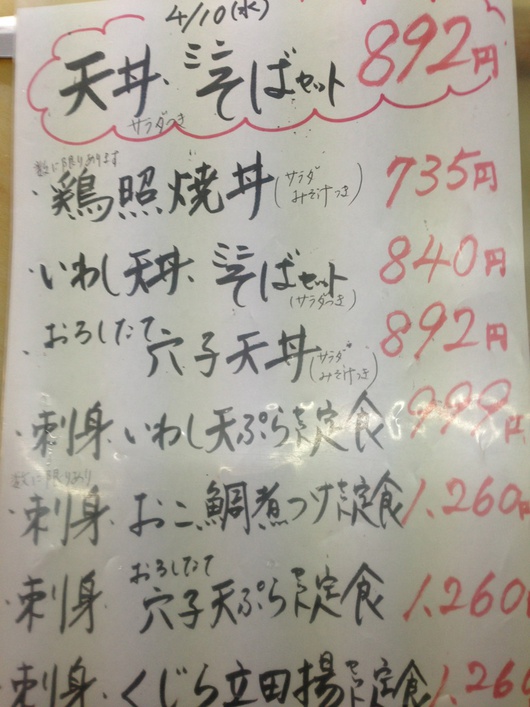 4/10(水)
天丼、ミニそばセット 892円
サラダつき
数に限りあります
・鶏照焼丼(サラダみそ汁つき) 735円
・いわし天丼、ミニそばセット 840円
(サラダつき)
・おろしたて穴子天丼(サラダみそ汁つき) 892円
・刺身、いわし天ぷらセット定食 999円
数に限りあり
・刺身、おこ鯛煮つけセット定食 1,260円
・刺身、おろしたて穴子天ぷらセット定食 1,260
・刺身、くじら立田揚セット定食 1,260